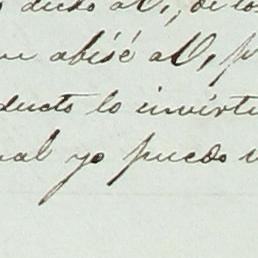 dicho a V., de los
abisé a V., p
ducto lo invirti
ual yo puedo